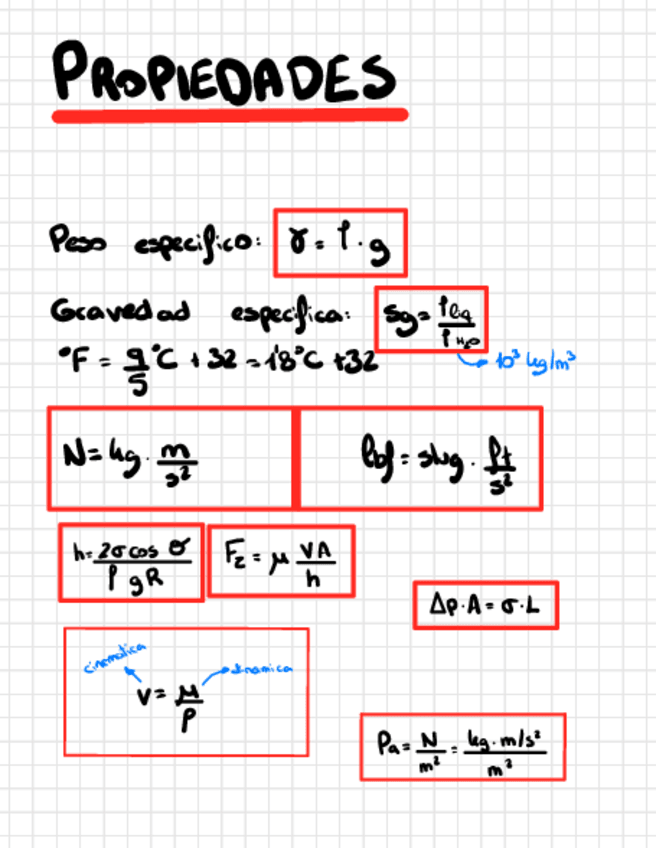 PROPIEDADES
Peso especifico: γ = ρ · g
Gravedad especifica: Sg = ρ liq / ρ H₂O
°F = 9/5 °C + 32 = 1'8°C + 32 → 10³ kg/m³
N = kg · m/s²
lbf = slug · ft/s²
h = 2σ cos θ / ρ g R
F_z = μ VA/h
Δp · A = σ · L
cinematica dinamica
v = μ/ρ
Pa = N/m² = kg · m/s² / m²